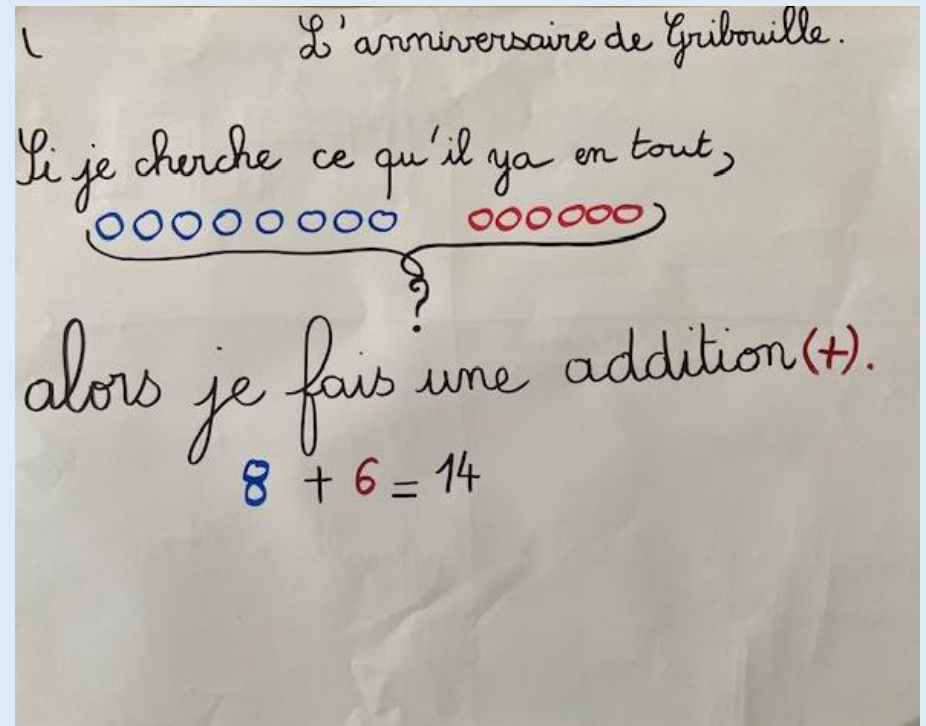 L'anniversaire de Gribouille.
Si je cherche ce qu'il ya en tout,
?
alors je fais une addition (+).
8 + 6 = 14